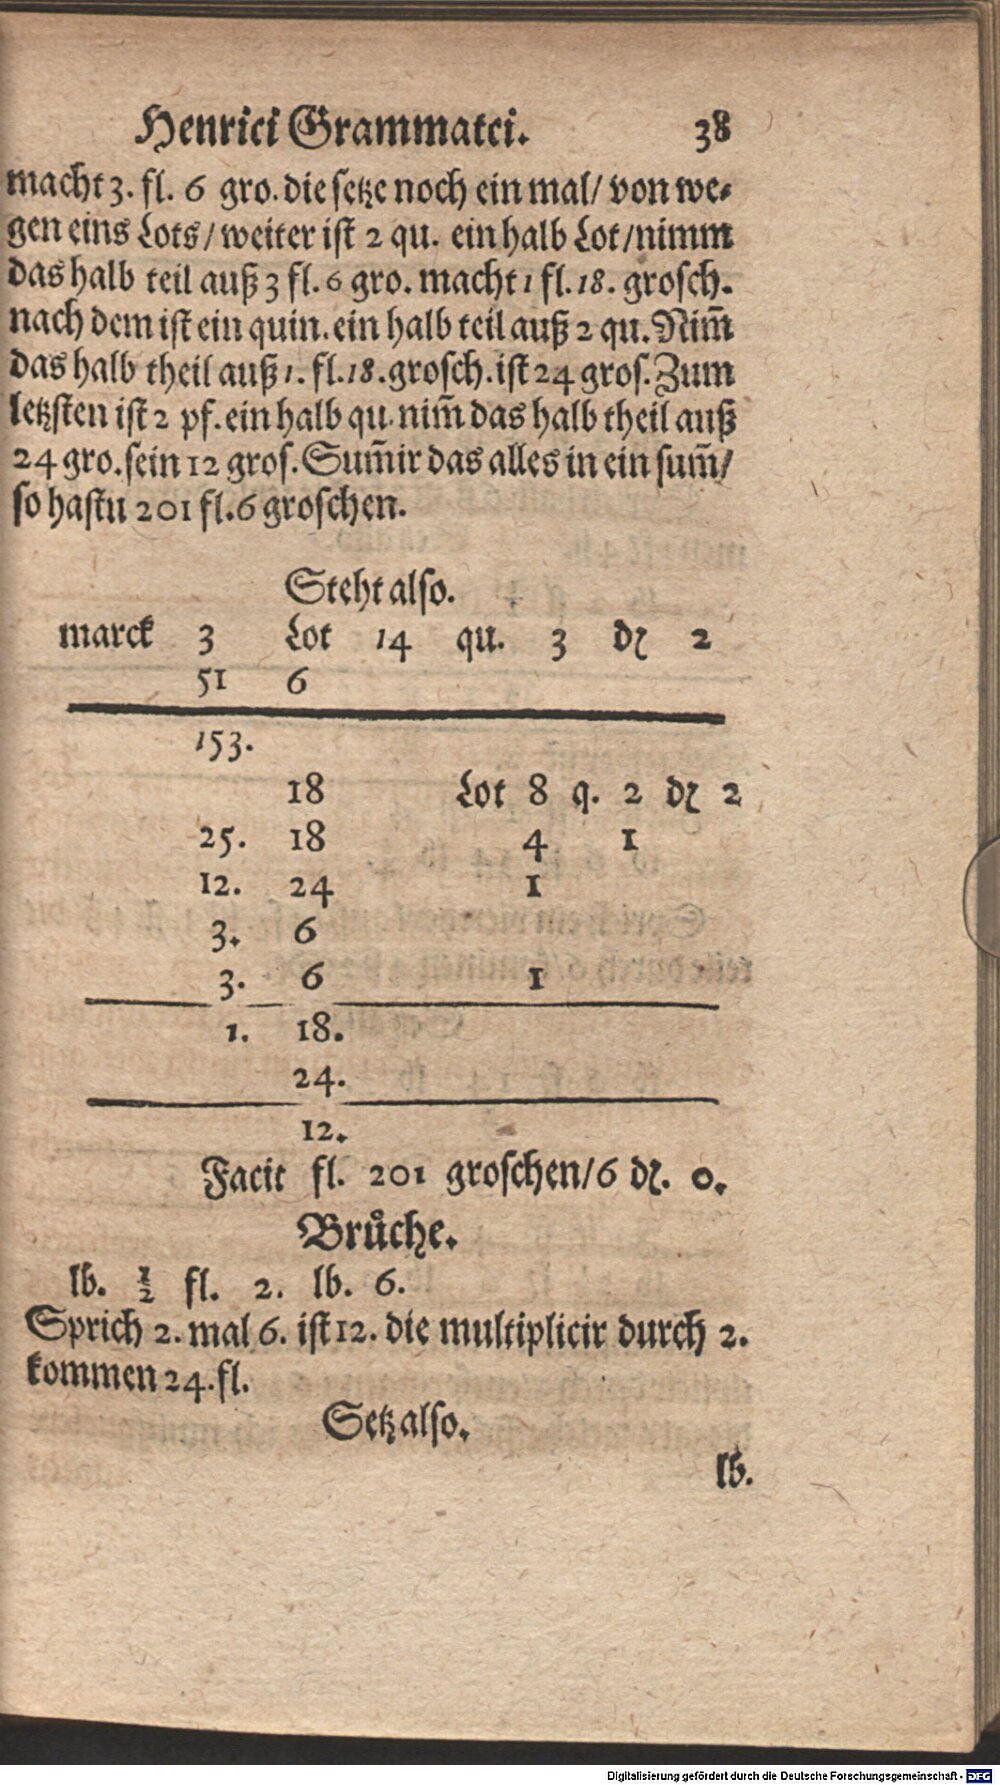 Henrici Grammatci. 38
macht 3. fl. 6 gro. die setze noch ein mal/ von we⸗
gen eins Lots/ weiter ist 2 qu. ein halb Lot/nimm
das halb teil auß 3 fl. 6 gro. macht 1 fl. 18. grosch.
nach dem ist ein quin. ein halb teil auß 2 qu. Nim̃
das halb theil auß 1. fl. 18. grosch. ist 24 gros. Zum
letzsten ist 2 pf. ein halb qu. nim̃ das halb theil auß
24 gro. sein 12 gros. Sum̃ir das alles in ein sum̃/
so hastu 201 fl. 6 groschen.
Steht also.
marck 3 Lot 14 qu. 3 ₰ 2
51 6
153.
18 Lot 8 q. 2 ₰ 2
25. 18 4 1
12. 24 1
3. 6
3. 6 1
1. 18.
24.
12.
Facit fl. 201 groschen/6 ₰. 0.
Bruͤche.
lb. ½ fl. 2. lb. 6.
Sprich 2. mal 6. ist 12. die multiplicir durch 2.
kommen 24. fl.
Setz also.
lb.
Digitalisierung gefördert durch die Deutsche Forschungsgemeinschaft - DFG